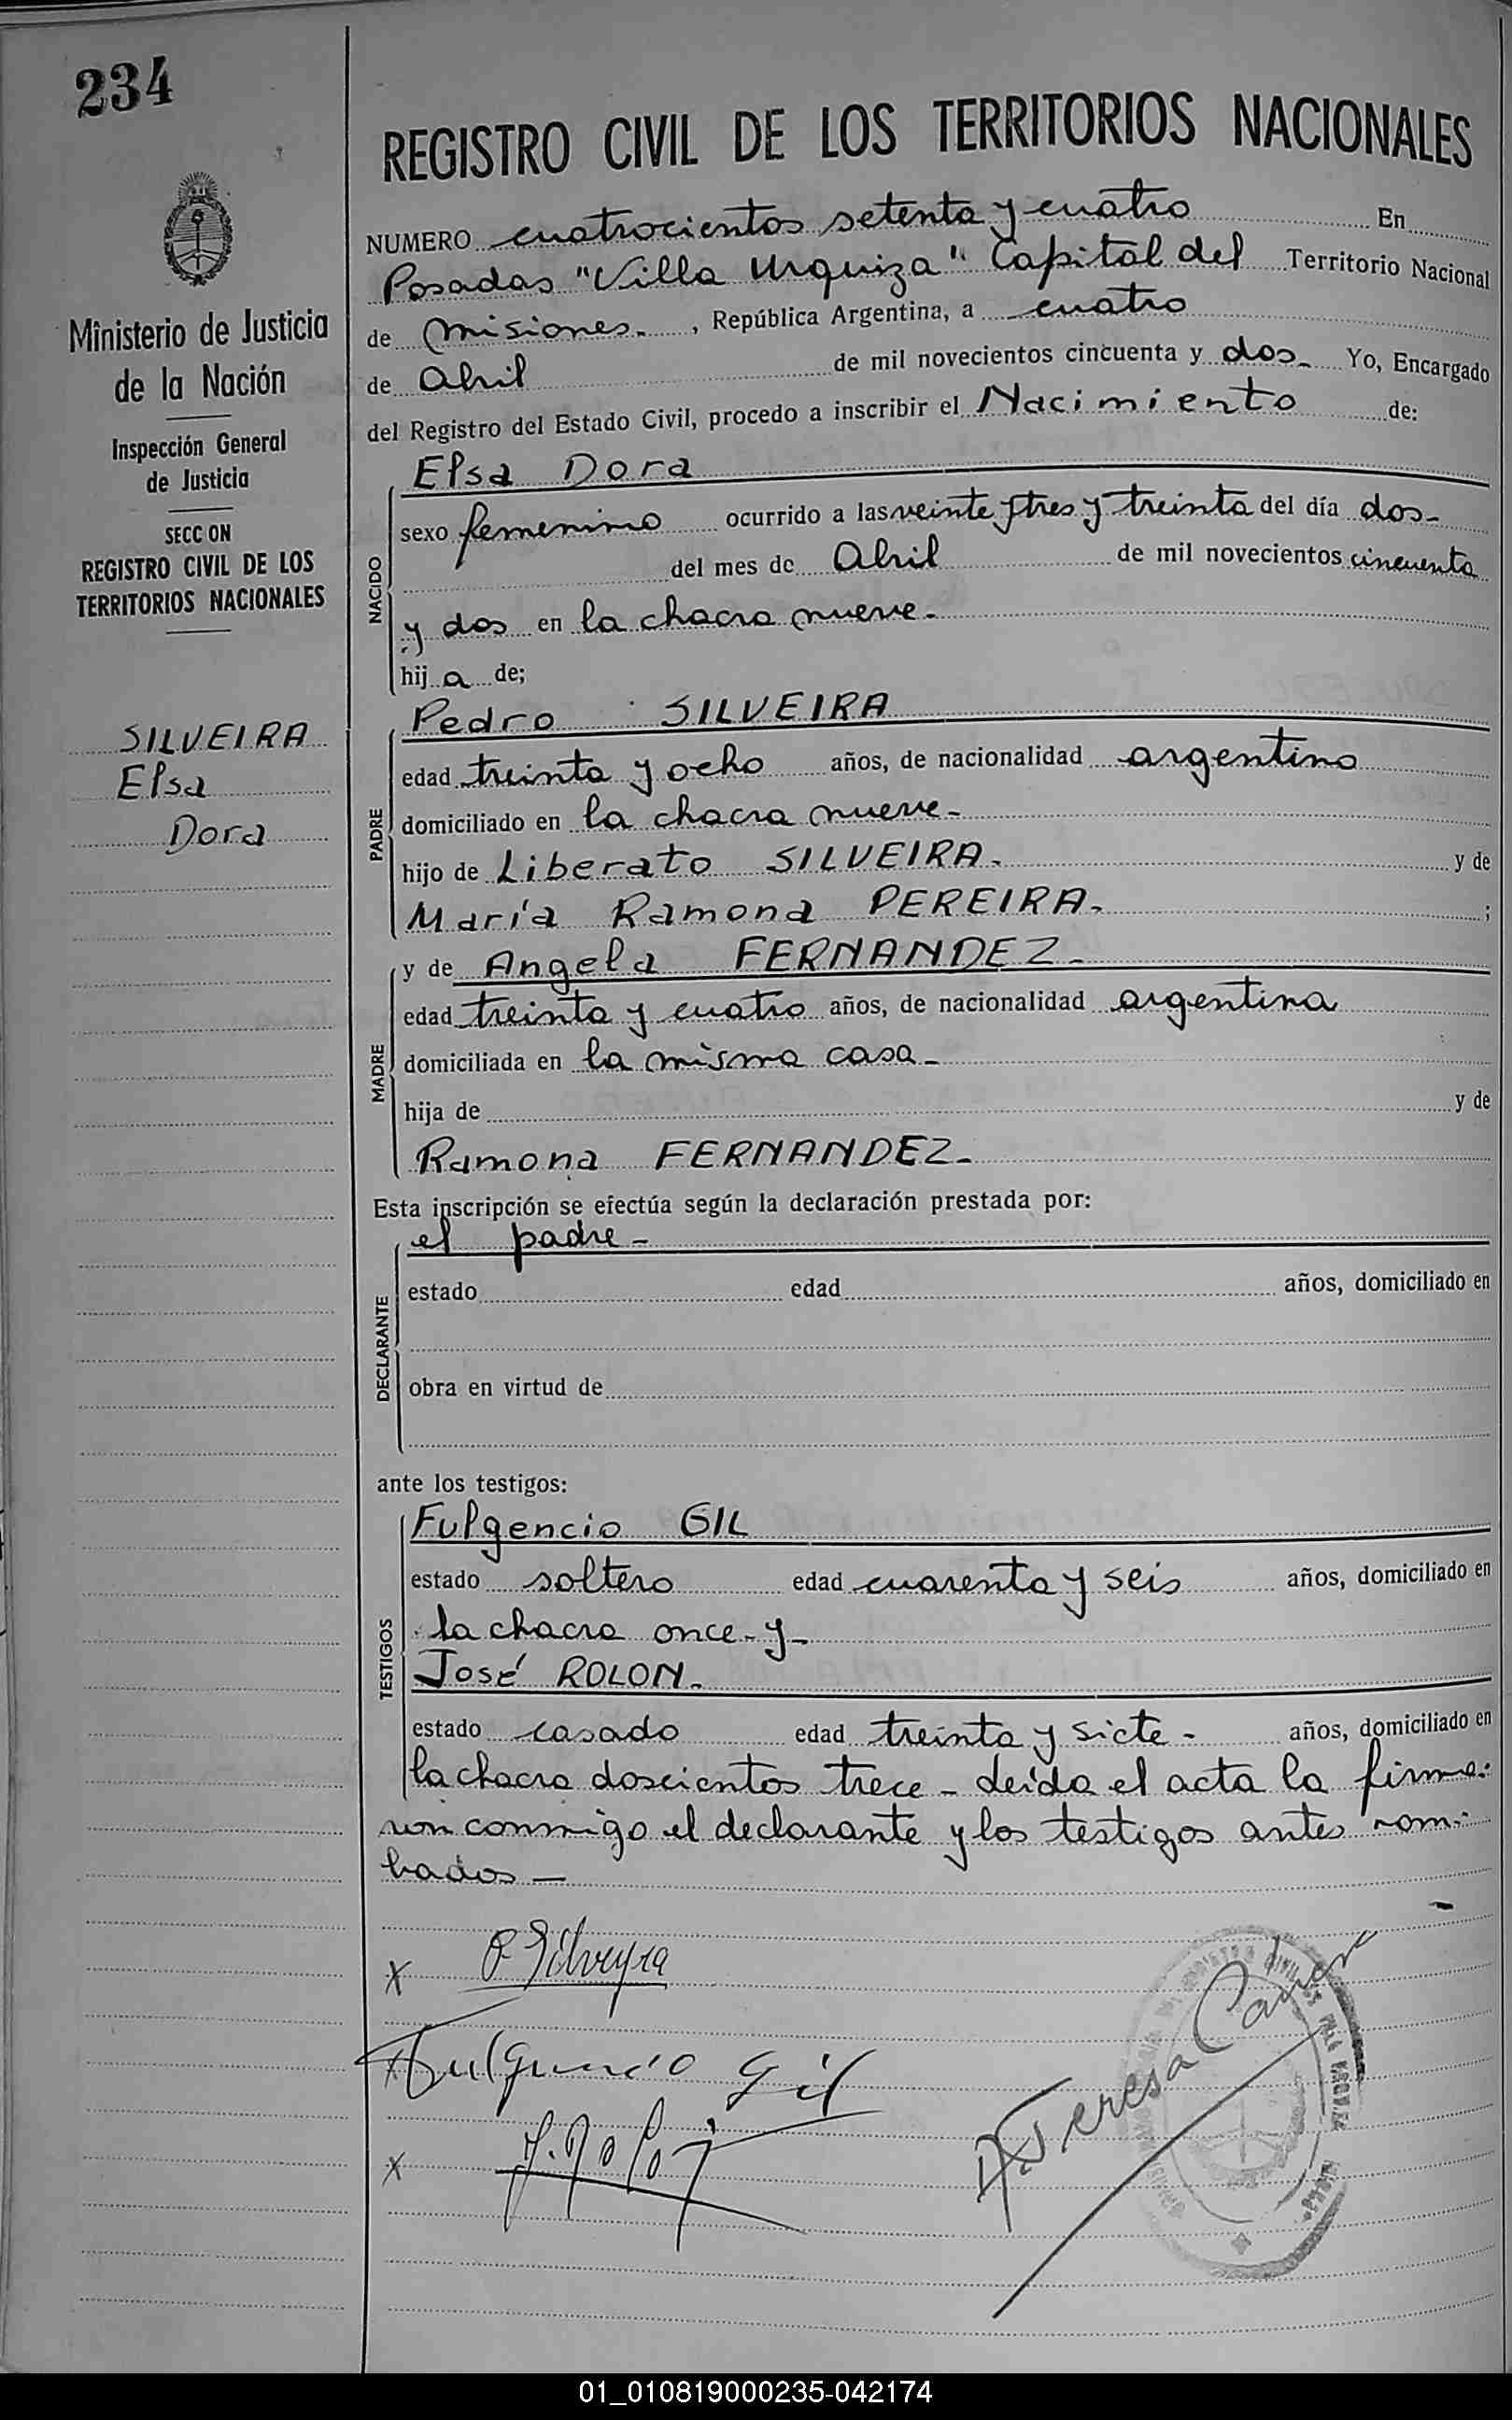 234
Ministerio de Justicia
de la Nación
Inspección General
de Justicia
SECC ON
REGISTRO CIVIL DE LOS
TERRITORIOS NACIONALES
SILVEIRA
Elsa
Dora
REGISTRO CIVIL DE LOS TERRITORIOS NACIONALES
NUMERO cuatrocientos setenta y cuatro En
Posadas "Villa Urquiza" Capital del Territorio Nacional
de Misiones. , República Argentina, a cuatro
de Abril de mil novecientos cincuenta y dos_ Yo, Encargado
del Registro del Estado Civil, procedo a inscribir el Nacimiento de:
NACIDO
Elsa Dora
sexo femenino ocurrido a las veinte y tres y treinta del día dos_
del mes de Abril de mil novecientos cincuenta
y dos en la chacra nueve_
hij a de;
PADRE
Pedro SILVEIRA
edad treinta y ocho años, de nacionalidad argentino
domiciliado en la chacra nueve_
hijo de Liberato SILVEIRA. y de
María Ramona PEREIRA. ;
MADRE
y de Angela FERNANDEZ_
edad treinta y cuatro años, de nacionalidad argentina
domiciliada en la misma casa_
hija de y de
Ramona FERNANDEZ_
Esta inscripción se efectúa según la declaración prestada por:
DECLARANTE
el padre_
estado edad años, domiciliado en
obra en virtud de
ante los testigos:
TESTIGOS
Fulgencio GIL
estado soltero edad cuarenta y seis años, domiciliado en
la chacra once_y_
José ROLON.
estado casado edad treinta y siete_ años, domiciliado en
la chacra doscientos trece_Leída el acta la firma:
ron conmigo el declarante y los testigos antes nom:
brados_
x P Silveyra
x Fulguencio Gil
x J. Rolon
Teresa
01_010819000235-042174